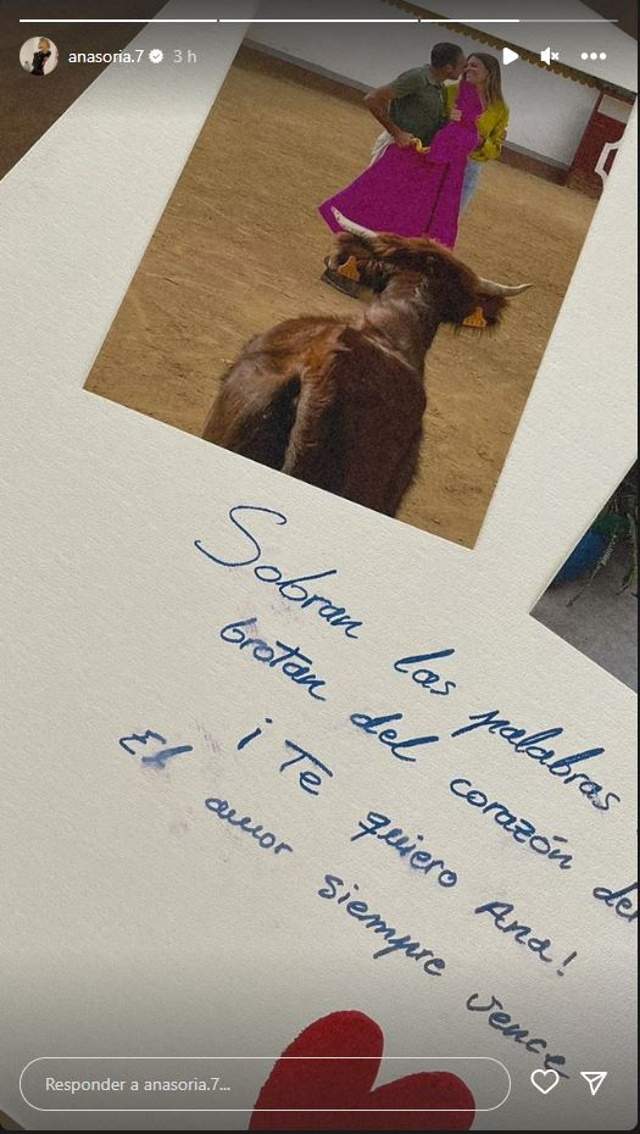 anasoria.7 3 h
Sobran las palabras
brotan del corazón
¡Te quiero Ana!
El amor siempre vence
Responder a anasoria.7...